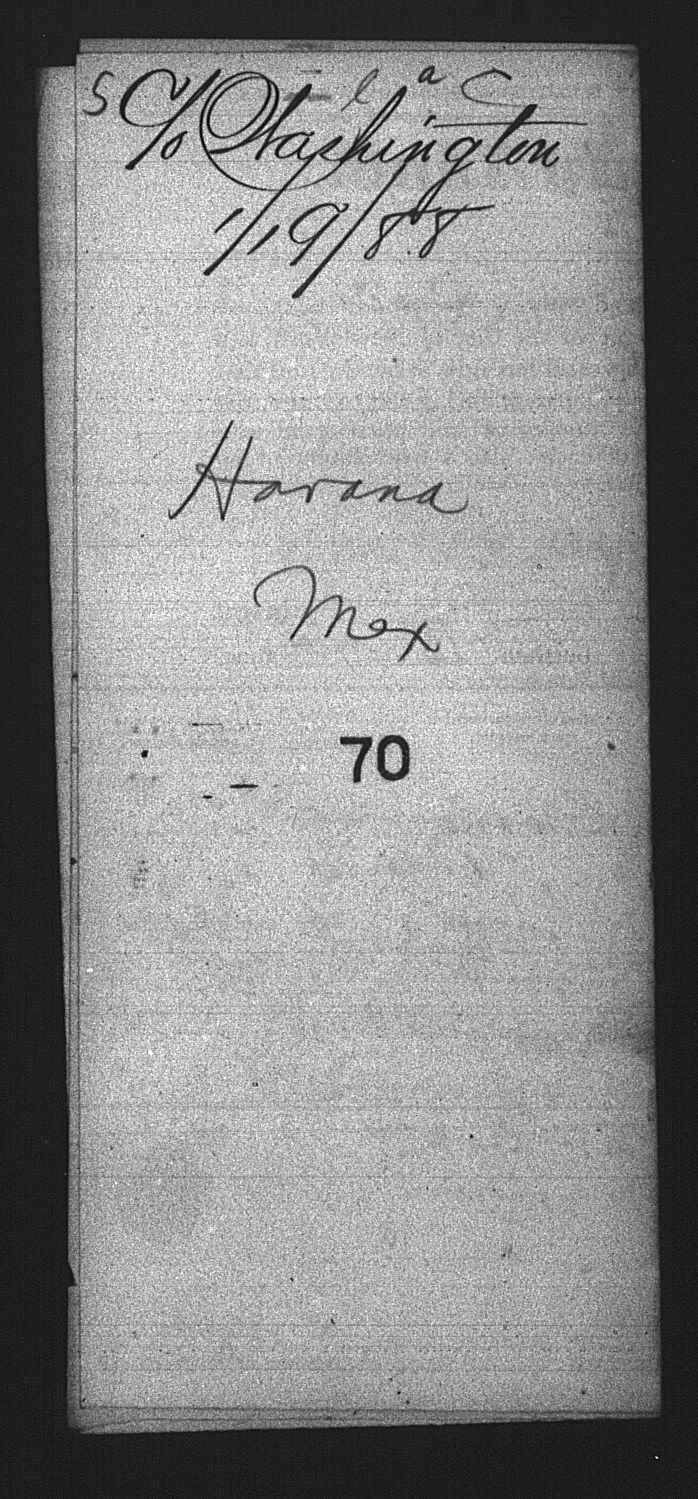 S l a C
C/o Washington
1/19/88
Havana
Mex
70